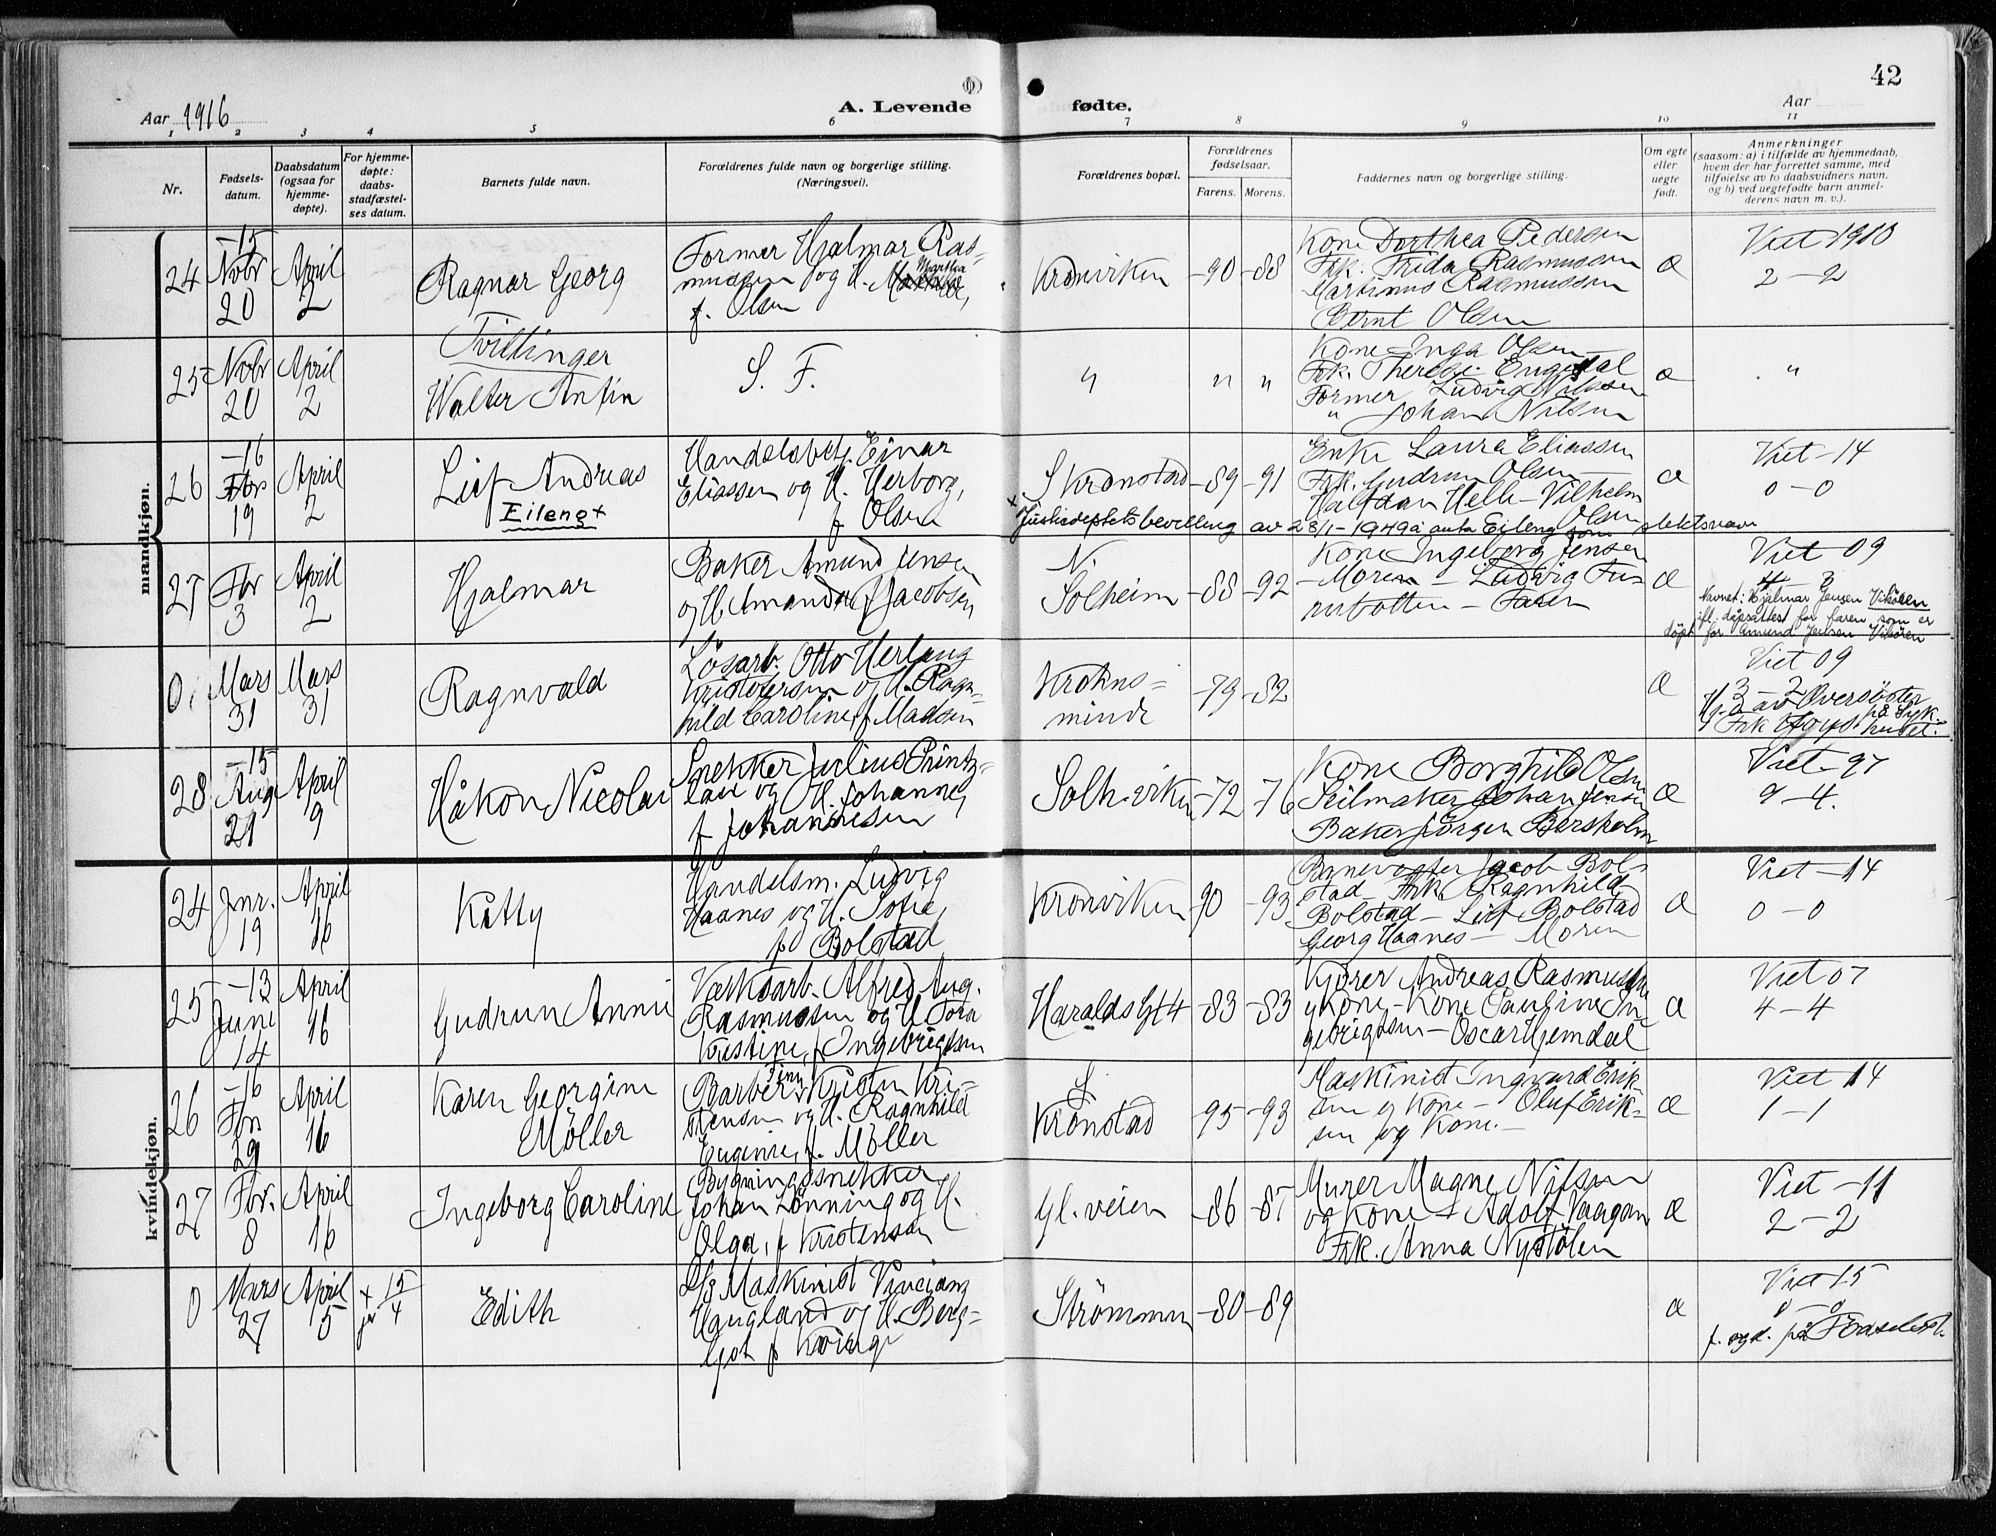 42
Aar 1916
A. Levende fødte.
Aar
1 2 3 4 5 6 7 8 9 10 11
Nr.
Fødsels-
datum.
Daabsdatum
(ogsaa for
hjemme-
døpte).
For hjemme-
døpte:
daabs-
stadfæstel-
ses datum.
Barnets fulde navn.
Forældrenes fulde navn og borgerlige stilling.
(Næringsvei).
Forældrenes bopæl.
Forældrenes
fødselsaar.
Farens. Morens.
Faddernes navn og borgerlige stilling.
Om egte
eller
uegte
født.
Anmerkninger
(saasom: a) i tilfælde av hjemmedaab,
hvem der har forrettet samme, med
tilføielse av to daabsvidners navn,
og b) ved uegtefødte barn anmel-
derens navn m. v.).
mandkjøn.
24
-15
Novbr
20
April
2
Ragnar Georg
Former Hjalmar Ras-
mussen og H. Martha
f. Olsen
Kronviken
-90 -88
Kone Dorthea Pedersen
Frk. Frida Rasmussen
Martinus Rasmussen
Bernt Olsen
æ
Viet 1910
2-2
25
Novbr
20
April
2
Tvillinger
Walter Anfin
S. F.
"
" "
Kone Inga Olsen
Frk. Therese Engedal
Former Ludvig Nilssen
" Johan Nilsen
æ
"
26
-16
Fbr
19
April
2
Leif Andreas
Eileng+
Handelsbetj. Einar
Eliassen og H. Herborg,
f Olsen
S Kronstad
-89 -91
Enke Laura Eliassen
Frk. Gudrun Olsen
Halfdan Helle - Vilhelm
Olsen
æ
Viet-14
0-0
x Justisdeptets bevilling av 28/1-1949 å anta Eileng som slektsnavn
27
Fbr
3
April
2
Hjalmar
Baker Amund Jensen
og H. Amanda f Jacobsen
N.
Solheim
-88 -92
Kone Ingeborg Jensen
- Moren - Ludvig Fu-
rubotten - Faren
æ
Viet 09
4 3
Navnet: Hjalmar Jensen Vikören
ifl. dåpsattest for faren, som er
döpt for Amund Jensen Vikören
0
Mars
31
Mars
31
Ragnvald
Lösarb. Otto Herlaug
Kristofersen og H. Ragn-
hild Caroline f Madsen
Krohns-
minde
-79 -82
æ
Viet 09
3-2
Hj.d av Oversöster
Frk. på Syk.
huset.
28
-15
Aug
29
April
9
Håkon Nicolai
Snekker Julius Printz-
lau og H. Johanne,
f Johannesen
Solh.viken
-72 -76
Kone Borghild Olsen
Seilmaker Johan Jensen
Baker Jörgen Bersholm
æ
Viet-97
9-4.
kvindekjøn.
24
Jnr.
19
April
16
Kitty
Handelsm. Ludvig
Haanes og H. Sofie,
f Bolstad
Kronviken
90 -93
Jacob Bol-
stad Frk. Ragnhild
Bolstad - Leif Bolstad
Georg Haanes - Moren
æ
Viet -14
0-0
25
-13
Juni
14
April
16
Gudrun Annie
Værksarb. Alfred Aug.
Rasmussen og H Tora
Kristine, f Ingebrigtsen
Haralds Gt 4
-83 -83
Kjører Andreas Rasmussen
og Kone - Kone Pauline In-
gebrigtsen - Oscar Hjemdal
æ
Viet 07
4-4
26
-16
Fbr
29
April
16
Karen Georgine
Møller
Barber Kristen Kri-
stensen og H. Ragnhild
Eugenie, f. Möller
S.
Kronstad
-95 -93
Maskinist Ingvard Erik-
sen og Kone - Oluf Erik-
sen og Kone.-
æ
Viet 14
1-1
27
Fbr.
8
April
16
Ingeborg Caroline
Bygningssnekker
Johan Lönning og H.
Olga, f Kristensen
Gl. veien
-86 -87
Murer Magne Nilsen
og Kone - Adolf Vaagan
Frk. Anna Nystölen
æ
Viet -11
2-2
0
Mars
27
April
5
+ 15/4
Edith
Maskinist
Haugland og H. Berg-
ljot f
Strömmen
-80 -89
æ
Viet 15
0-0
f. og d. på Födselsst.